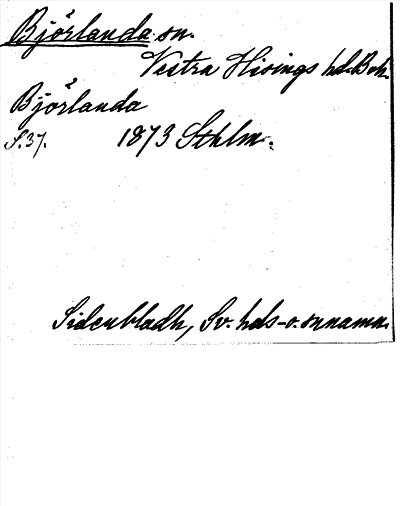 Björlanda sn.
Vestra Hisings hd. Boh.
Björlanda
S. 37. 1873 Sthlm.
Sidenbladh, Sv. hds- o. snnamn.